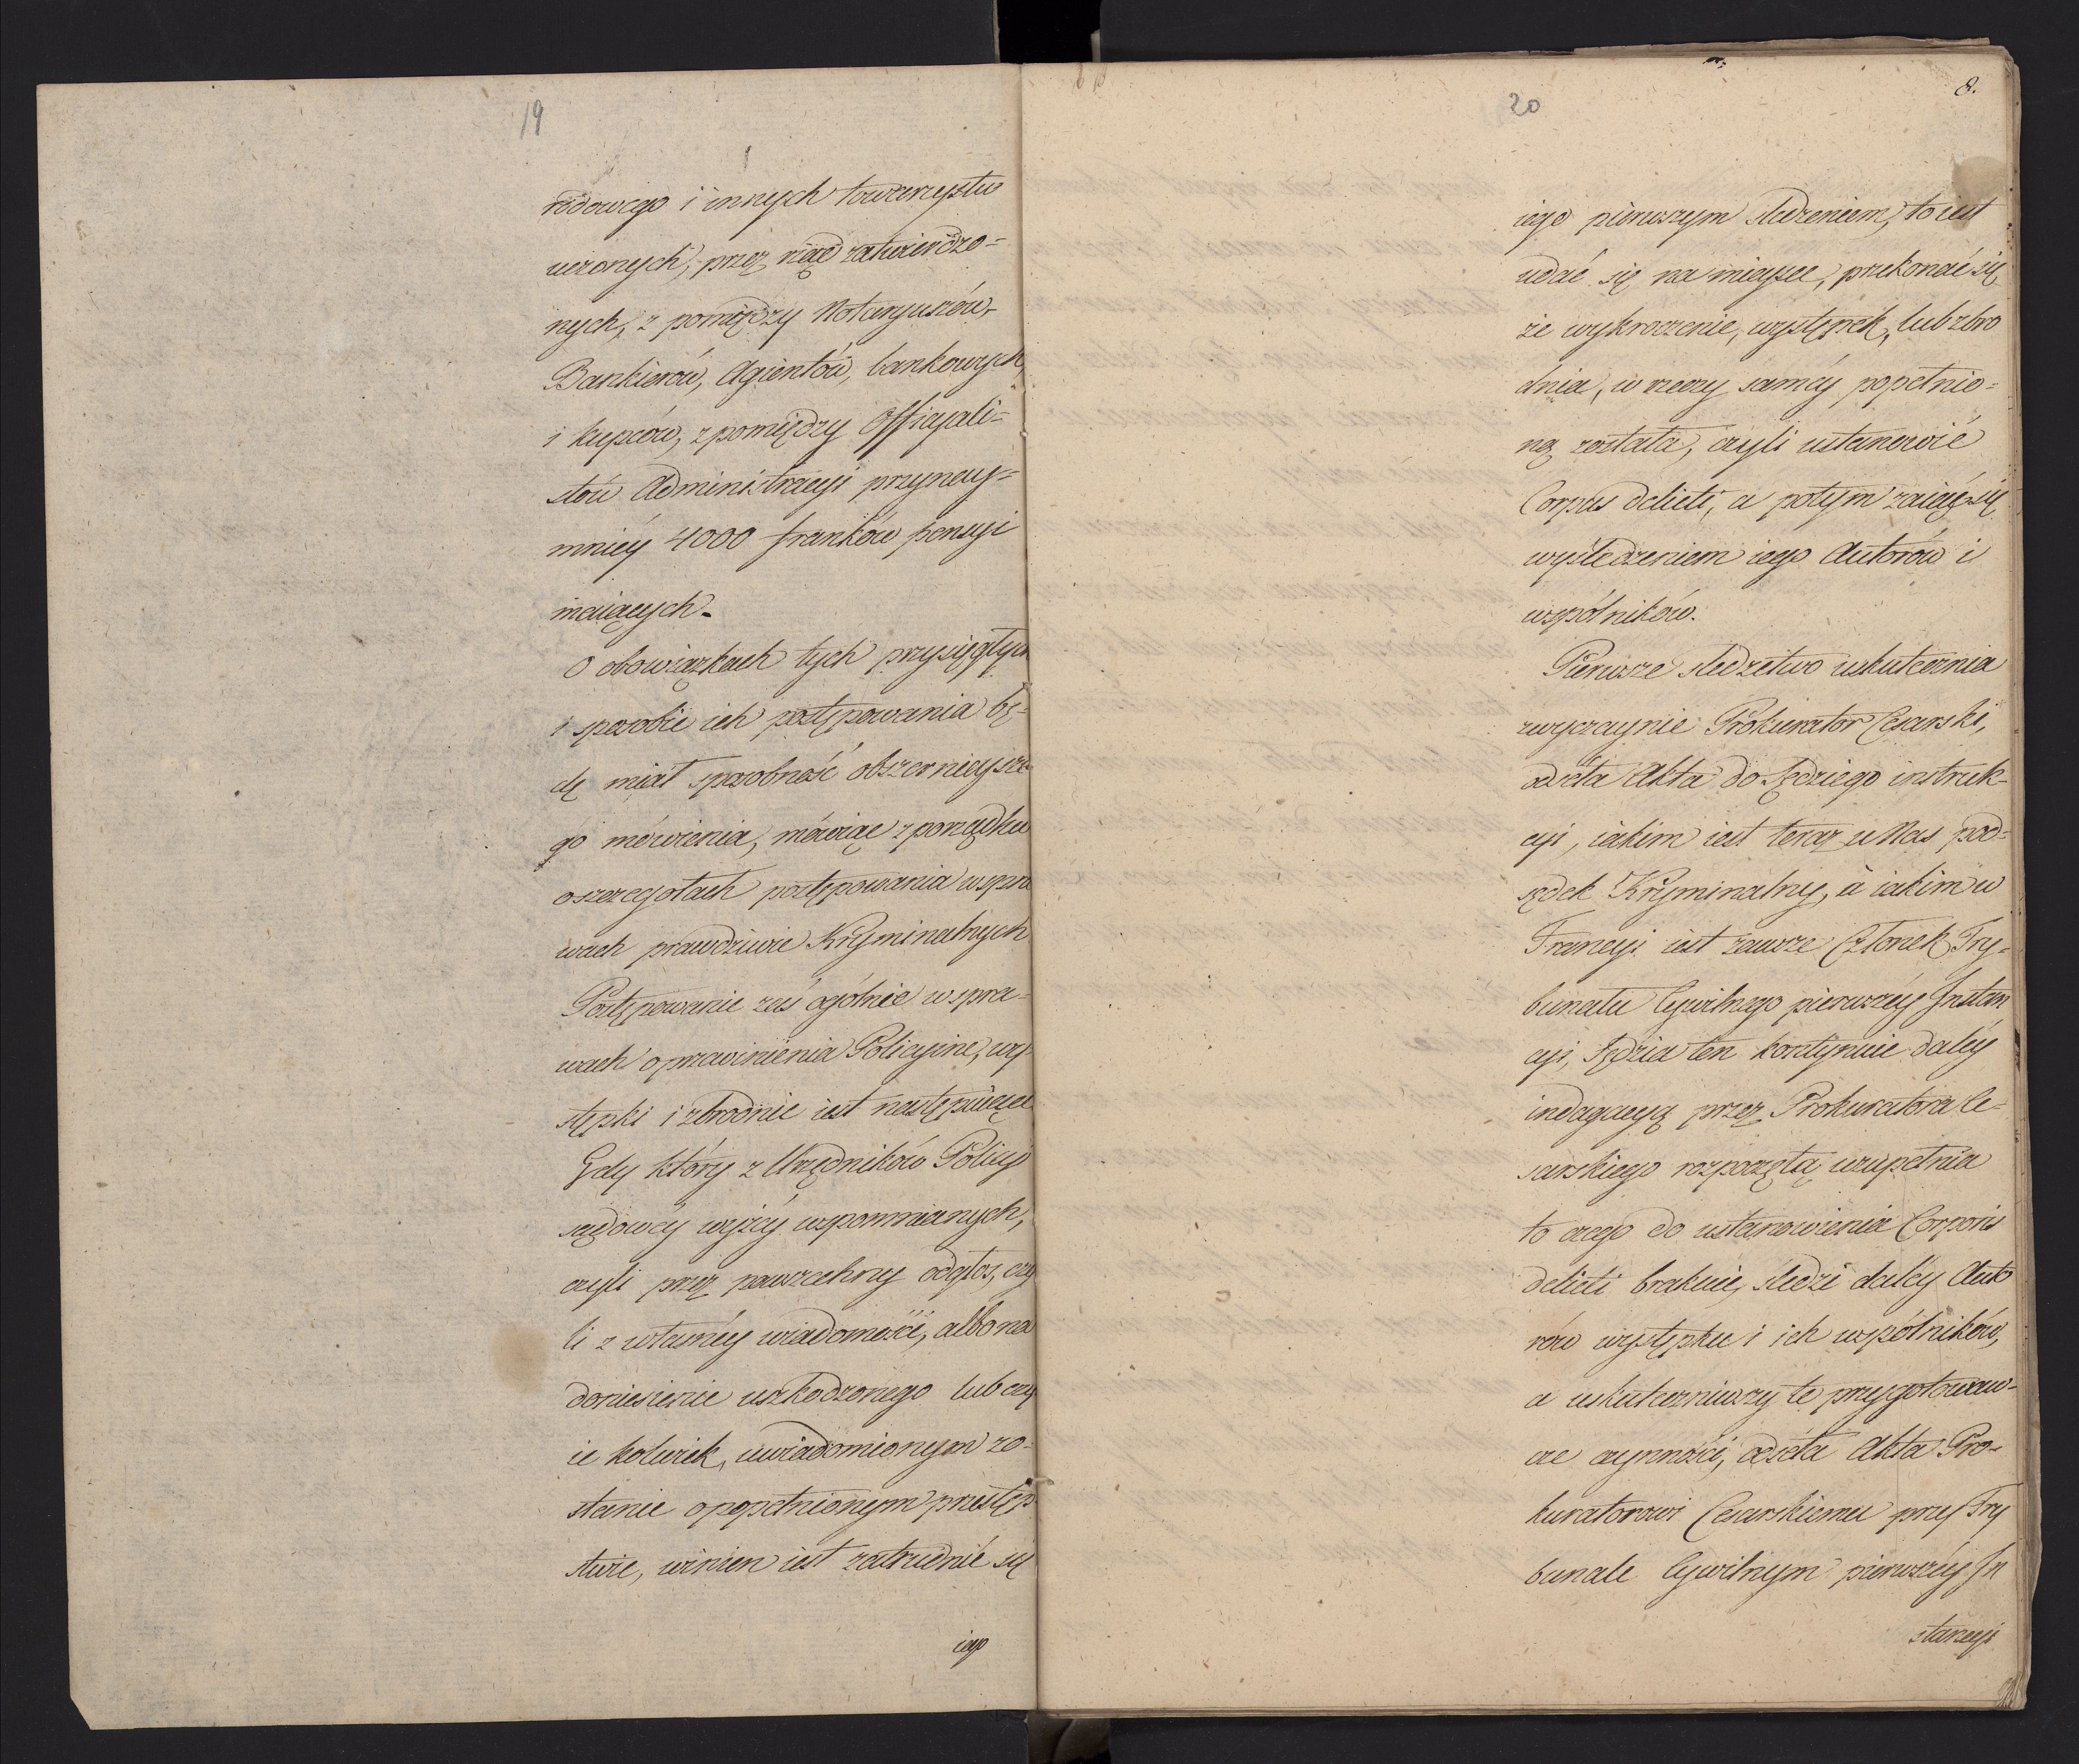 19
rodowego i innych towarzystw
uczonych, przez rząd zatwierdzo=
nych, z pomiędzy Notaryuszów,
Bankierów, Agientów, bankowych,
i kupców, z pomiędzy Officyali=
stów Administracyi przynay=
mniéy 4000 franków pensyi
maiących.
O obowiązkach tych przysięgłych
i sposobie ich postępowania bę=
dę miał sposobność obszerniejsze
go mówienia, mówiąc z porządku
o szczegółach postępowania w spra
wach prawdziwie Kryminalnych
Postępowanie zaś ogólnie w spra=
wach o przewinienia Policyine, wy=
stępki i zbrodnie iest następuiące
Gdy który z Urzędników Policyi
sądowéy wyżéy wspomnianych,
czyli przez powszechny odgłos, czy
li z własnéy wiadomości, albo na
doniesienie uszkodzonego lub czy
ie kolwiek, uwiadomionym zo=
stanie o popełnionym przestęp
stwie, winien iest zatrudnić się
iego
20
8.
iego pierwszym śledzeniem, to iest
udać się na mieysce, przekonać się
że wykroczenie, występek, lub zbro
dnia, w rzeczy saméy popełnio=
ną została, czyli ustanowić
Corpus delicti, a potym zaiąć się
wyśledzeniem iego Autorów i
wspólników.
Pierwsze śledztwo uskutecznia
zwyczaynie Prokurator Cesarski,
odséła Akta do Sędziego instruk=
cyi, iakim iest teraz u Nas pod=
sędek Kryminalny, a iakim w
Francyi iest zawsze Członek Try=
bunału Cywilnego pierwszéy Instan
cyi, Sędzia ten kontynuie daléy
indagacyą przez Prokuratora Ce=
sarskiego rozpoczętą uzupełnia
to czego do ustanowienia Corporis
delicti brakuie, śledzi daléy Auto
rów występku i ich wspólników,
a uskuteczniwszy te przygotowaw=
cze czynności, odséła Akta Pro=
kuratorowi Cesarskiemu przy Try
bunale Cywilnym pierwszéy In
stancyi